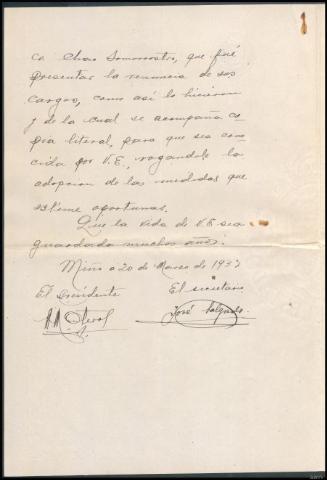 co Chao Somorrostro, que fué
presentar la renuncia de sus
cargos, como así lo hicieron
y de la cual se acompaña co
pia literal, para que sea cono
cida por V.E., rogandole la
adopcion de las medidas que
estime oportunas.
Que la vida de V.E sea
guardada muchos años.
Miño a 20 de Marzo de 193
El presidente El secretario
José Salgado